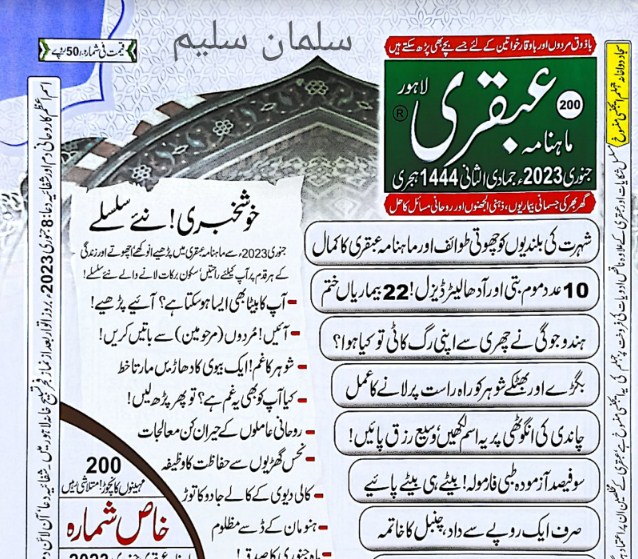 سلمان سلیم
قیمت فی شمارہ 50 روپے
باذوق مردوں اور باوقار خواتین کے لئے جسے بچے بھی پڑھ سکتے ہیں
لاہور
200
ماہنامہ عبقری
®
جنوری 2023ء، جمادی الثانی 1444 ہجری
گھر بھر کی جسمانی بیماریوں، ذہنی الجھنوں اور روحانی مسائل کا حل
خوشخبری! نئے سلسلے
جنوری 2023ء سے ماہنامہ عبقری میں پڑھیے انوکھے اچھوتے اور زندگی
کے ہر قدم پر آپ کیلئے راحتیں سکون برکات لانے والے نئے سلسلے!
آپ کا بیٹا بھی ایسا ہوسکتا ہے؟ آئیے پڑھیے!
آئیں! مُردوں (مرحومین) سے باتیں کریں!
شوہر کا غم! ایک بیوی کا دھاڑیں مارتا خط
کیا آپ کو بھی یہ غم ہے؟ تو پھر پڑھ لیں!
روحانی عاملوں کے حیران کن معالجات
نحس گھڑیوں سے حفاظت کا وظیفہ
کالی دیوی کے کالے جادو کا توڑ
ہنومان کے ڈسے مظلوم
ماہ جنوری کا صدقہ!
شہرت کی بلندیوں کو چھوتی طوائف اور ماہنامہ عبقری کا کمال
10 عدد موم بتی اور آدھا لیٹر ڈیزل! 22 بیماریاں ختم
ہندو جوگی نے چھری سے اپنی رگ کاٹی تو کیا ہوا؟
بگڑے اور بھٹکے شوہر کو راہ راست پر لانے کا عمل
چاندی کی انگوٹھی پر یہ اسم لکھیں وسیع رزق پائیں!
سو فیصد آزمودہ طبی فارمولہ! بیٹے ہی بیٹے پائیے
صرف ایک روپے سے داد، چنبل کا خاتمہ
200
مہینوں کا نچوڑ! متلاشی ہیں
خاص شمارہ
اسم اعظم کا روحانی دم اور شفائیہ دعا: 8 جنوری 2023ء بروز اتوار بعد از نماز فجر